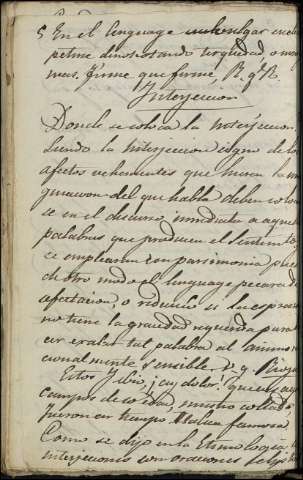 5 En el lenguage vulgar en el
petirse denostando terquedad, o mas y
mas. Firme que firme, R. q.e R.
Interjeccion
Donde se coloca la Interjeccion
Siendo la Interjeccion signo de los
afectos vehementes que mueven la
ginacion del que habla deben coloca
se en el discurso inmediatas a aquellas
palabras que producen el sentimiento
se emplearan con parsimonia pues
de otro modo el lenguage pecara de
afectacion, o ridiculo si la espresion
no tiene la gravedad requerida para
cer exalar tal palabra al animo
cionalmente sensible. V. g. Rioja
Estos, Fabio, ¡ay dolor! que ves aora
campos de soledad, mustio collado,
fueron un tiempo Italica famosa.
Como se dijo en la Etimologia
interjecciones son oraciones elip